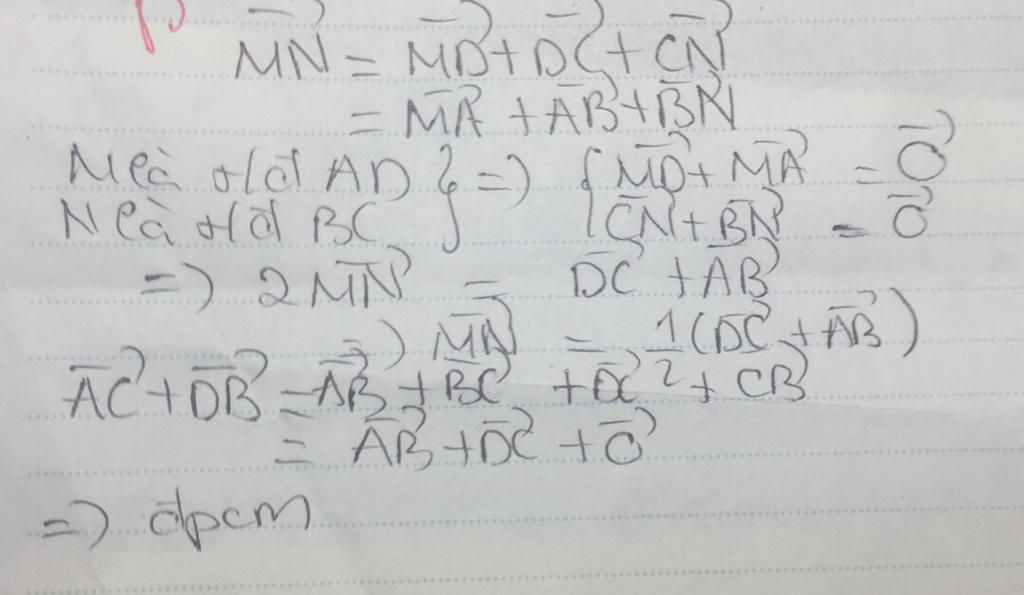 MN = MD + DC + CN
= MA + AB + BN
M là t/đ AD } => { MD + MA = 0
N là t/đ BC } { CN + BN = 0
=> 2MN = DC + AB
=> MN = 1/2 (DC + AB)
AC + DB = AB + BC + DC + CB
= AB + DC + 0
=> đpcm